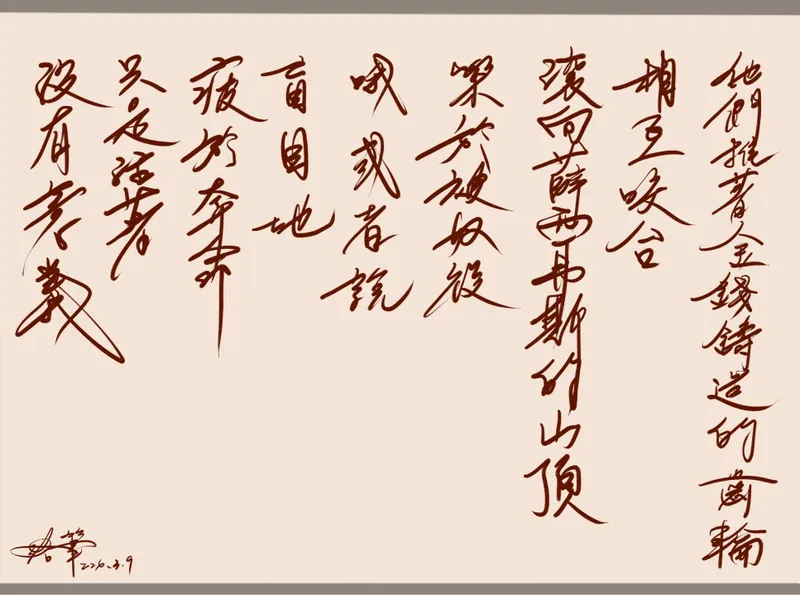 他們推著金錢鑄造的齒輪
相互咬合
滾向薛西弗斯的山頂
樂於被奴役
哦或者說
盲目地
疲於奔命
只是活著
沒有意義